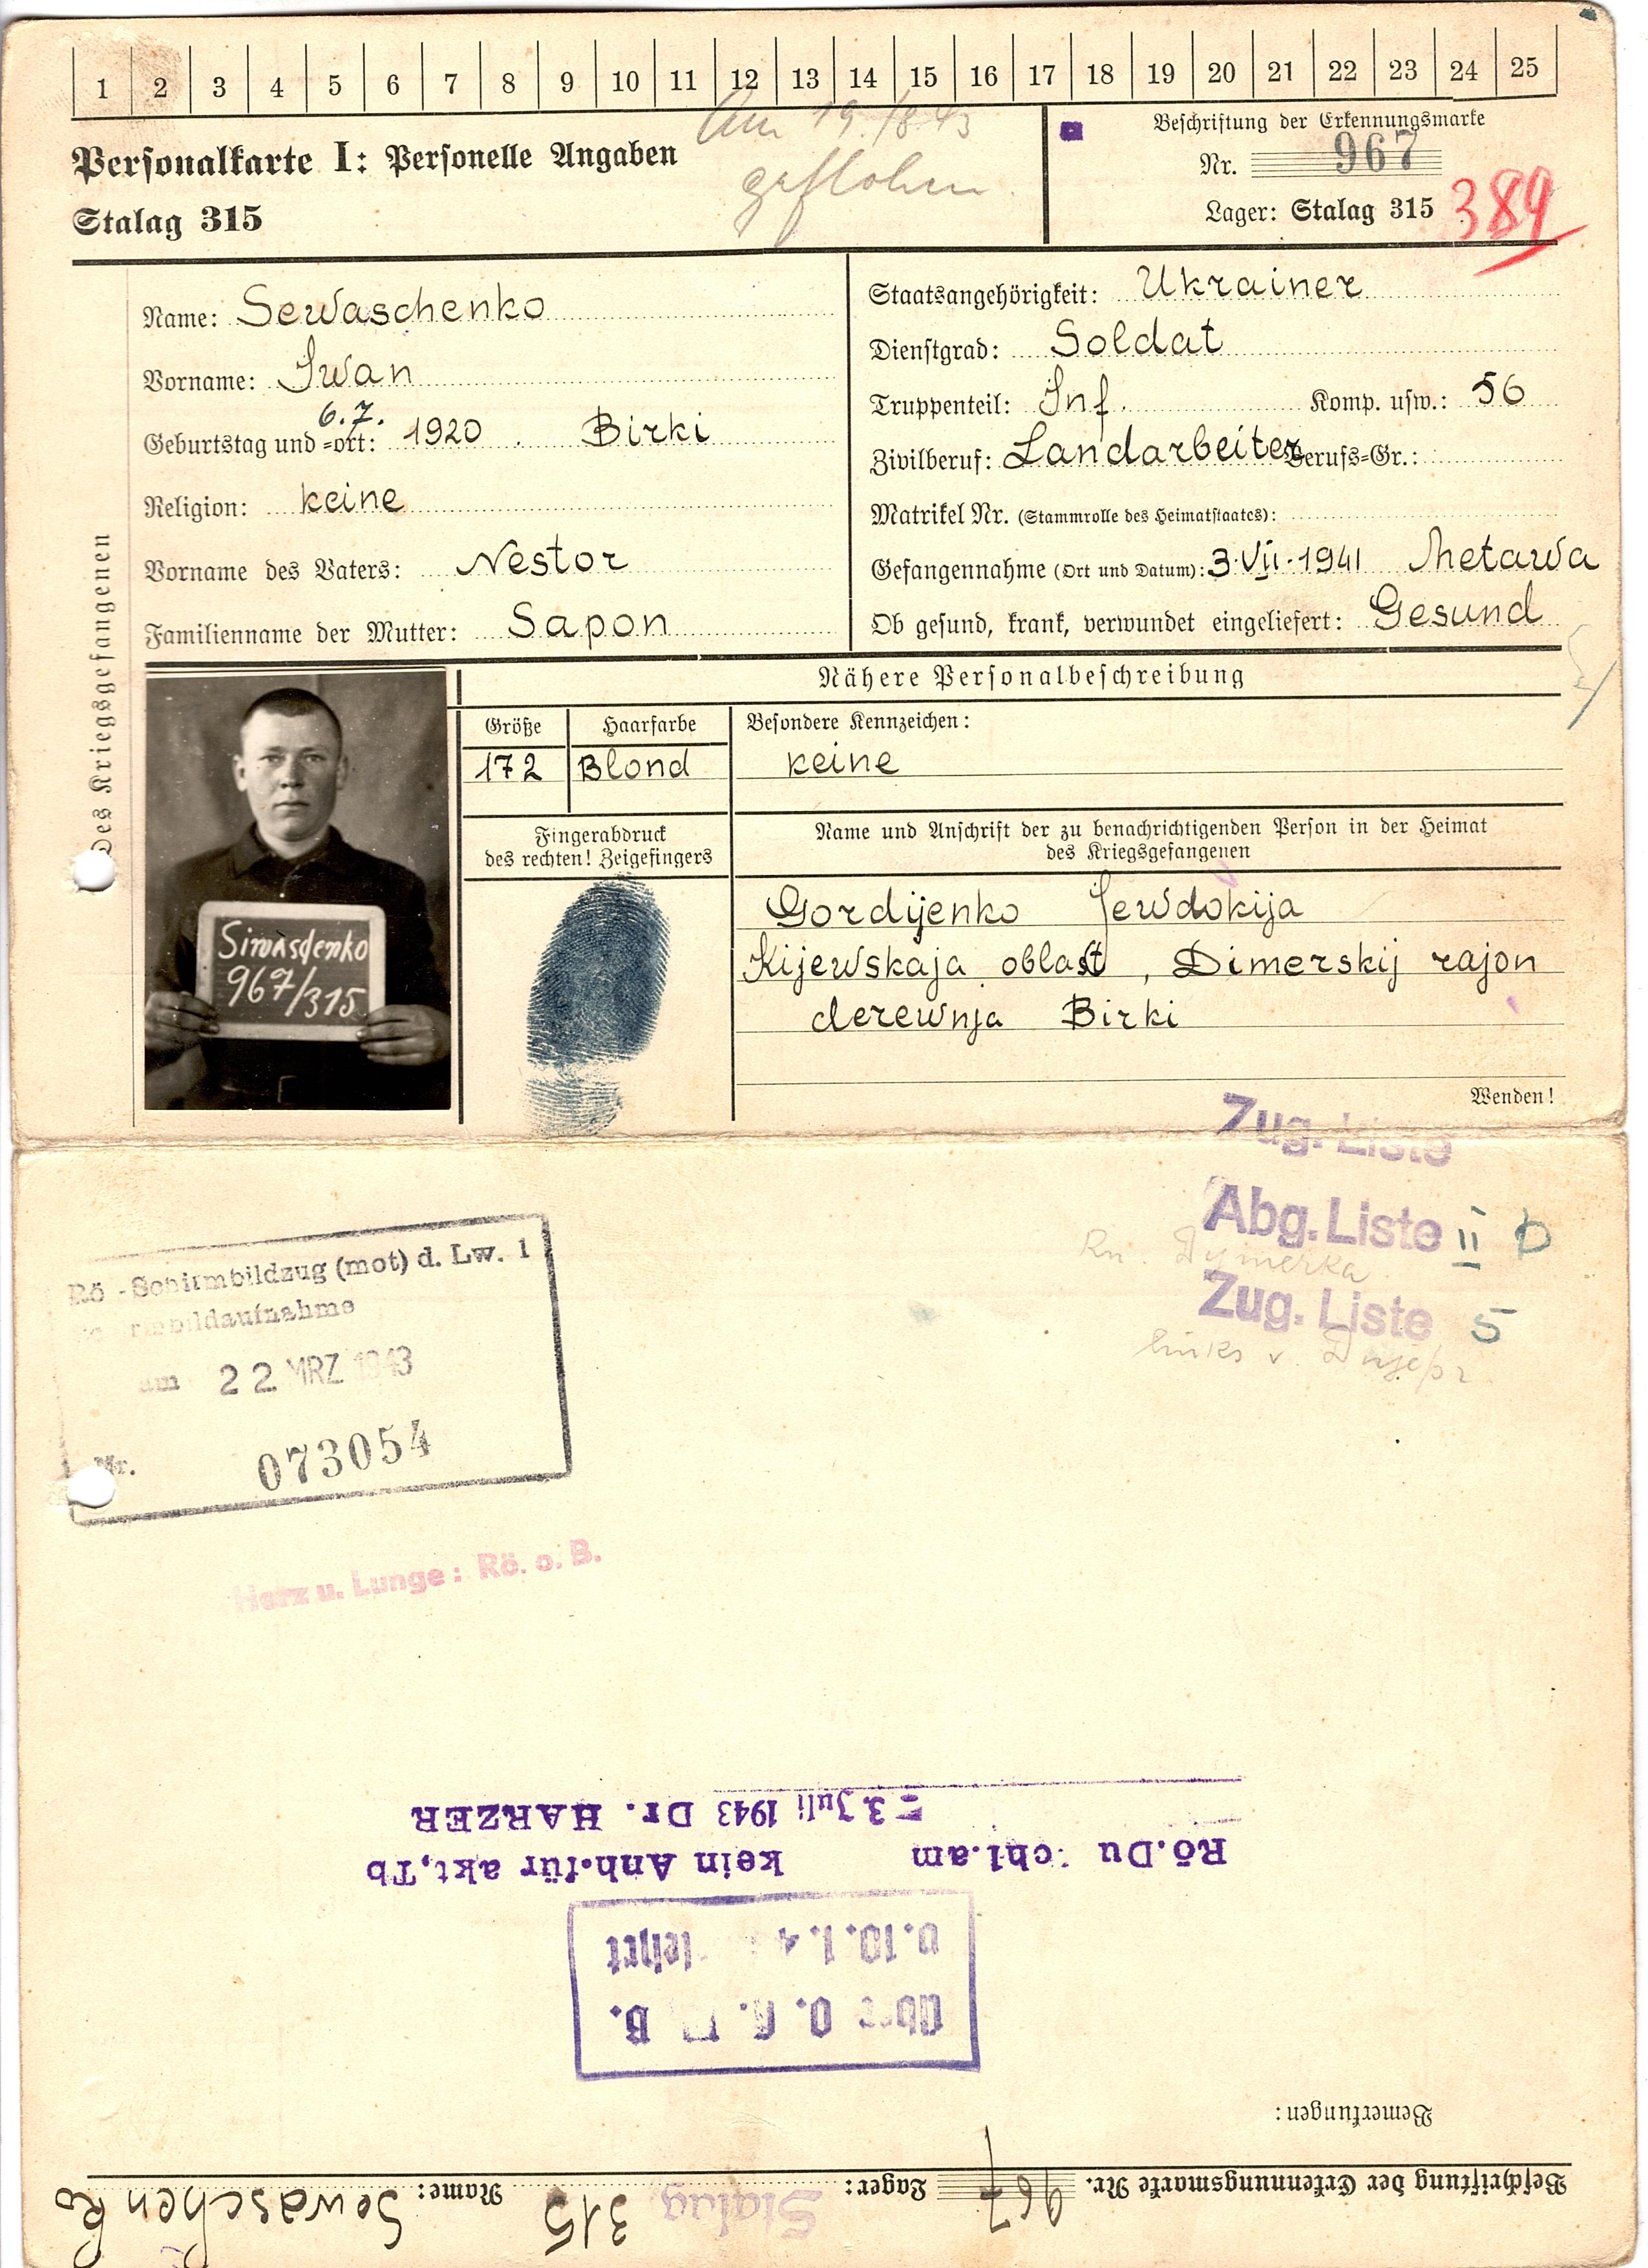 1 2 3 4 5 6 7 8 9 10 11 12 13 14 15 16 17 18 19 20 21 22 23 24 25
Am 19./8 43
geflohen.
Personalkarte I: Personelle Angaben
Stalag 315
Beschriftung der Erkennungsmarke
Nr. 967
Lager: Stalag 315
389
Des Kriegsgefangenen
Name: Sewaschenko
Vorname: Iwan
6.7.
Geburtstag und =ort: 1920 . Birki
Religion: keine
Vorname des Vaters: Nestor
Familienname der Mutter: Sapon
Staatsangehörigkeit: Ukrainer
Dienstgrad: Soldat
Truppenteil: Inf. Komp. usw.: 56
Zivilberuf: Landarbeiter Berufs=Gr.:
Matrikel Nr. (Stammrolle des Heimatstaates):
Gefangennahme (Ort und Datum): 3.VII.1941 Metawa
Ob gesund, krank, verwundet eingeliefert: Gesund
Nähere Personalbeschreibung
Größe Haarfarbe Besondere Kennzeichen:
172 Blond keine
Fingerabdruck
des rechten! Zeigefingers
Name und Anschrift der zu benachrichtigenden Person in der Heimat
des Kriegsgefangenen
Gordijenko Jewdokija
Kijewskaja oblast, Dimerskij rajon
derewnja Birki
Siwaschenko
967/315
Wenden!
Zug. Liste
Abg. Liste II D
Rn. Dymerka
Zug. Liste 5
links v. Dnjepr
Rö -Schirmbildzug (mot) d. Lw. 1
am 22 MRZ 1943
Nr. 073054
Herz u. Lunge: Rö. o. B.
Beschriftung der Erkennungsmarke Nr. 967 Lager: Stalag 315 Name: Sewaschenko
Bemerkungen:
v. 10. 1. 4
Rö.Du chl.am kein Anh.für akt.Tb
=3 Juli 1943 Dr. HARZER